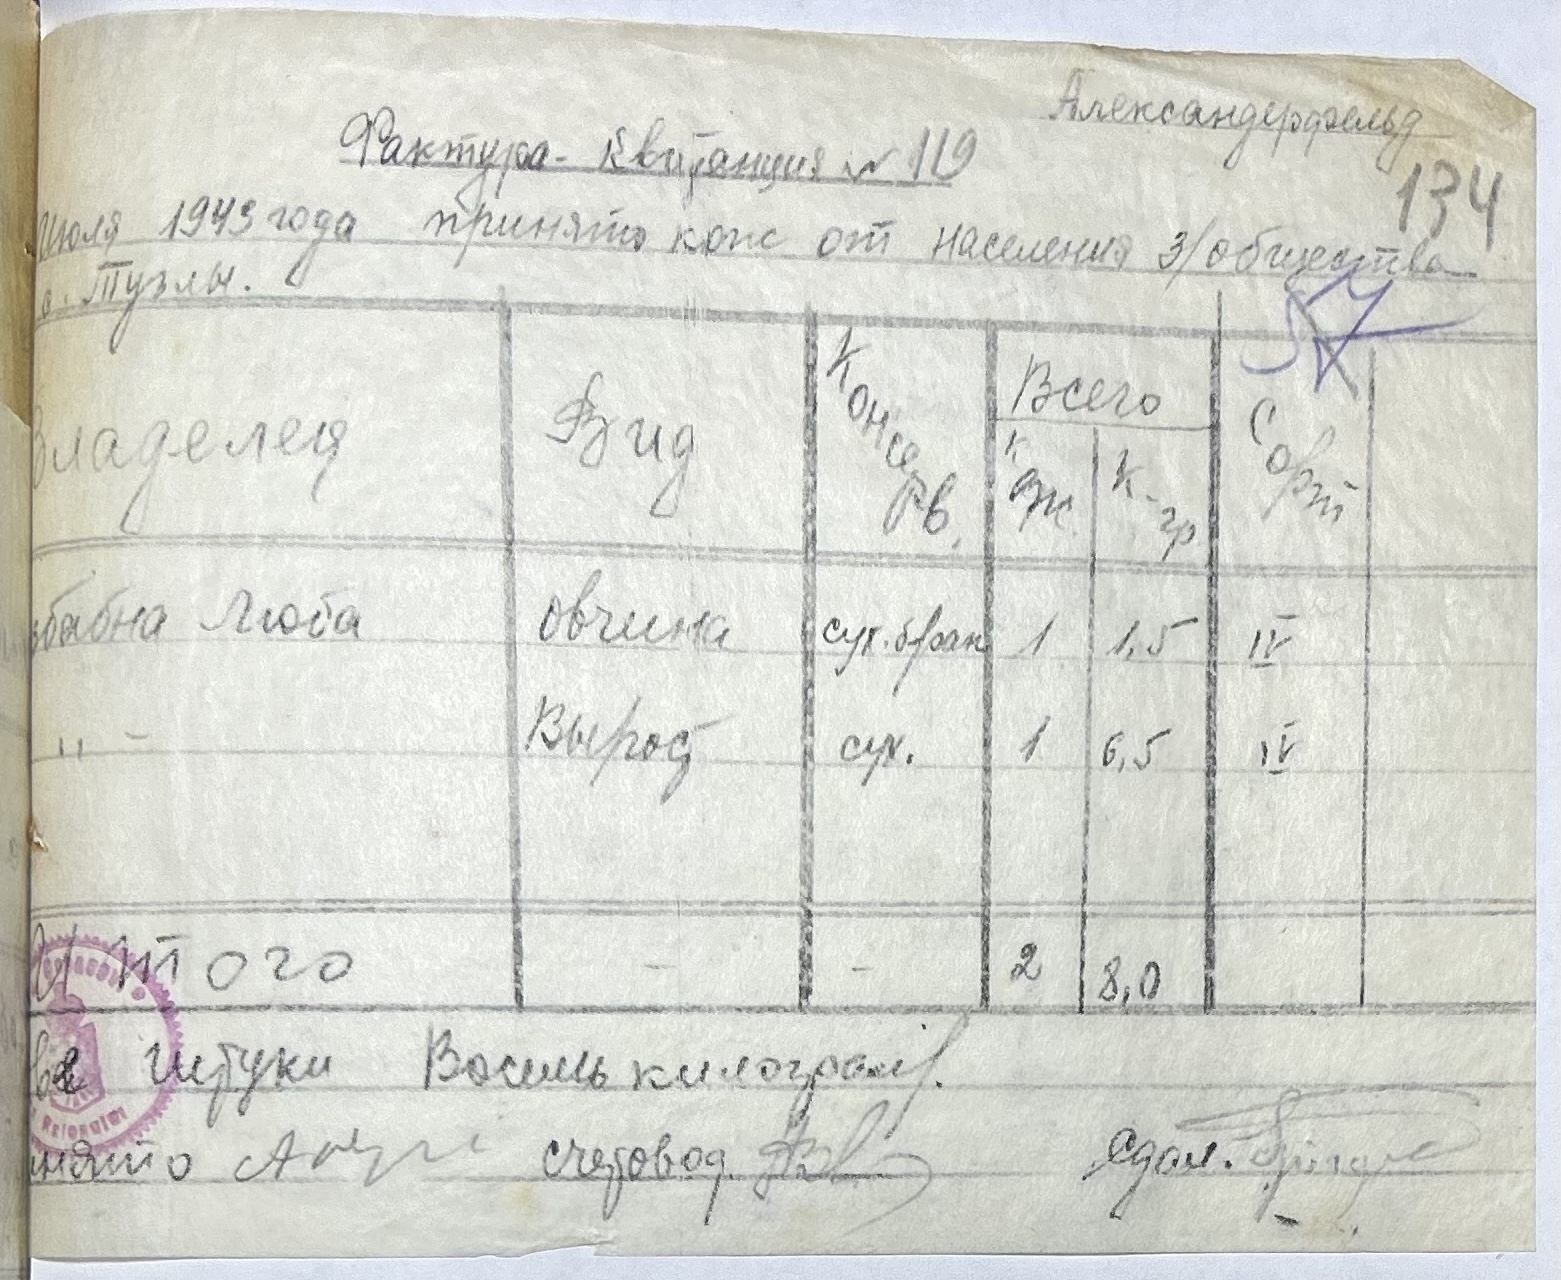 Александерфельд
Фактура-Квитанция № 119
134
Июля 1943 года принято кож от населения з/общества
с. Тузлы.
57
Владелец Вид Консерв. Всего Сорт
Кож. К-гр
Люба овчина сух. брак 1 1,5 IV
" - Вырост сух. 1 6,5 IV
Итого - - 2 8,0
две штуки Восемь килограм.
нято счетовод. сдал.